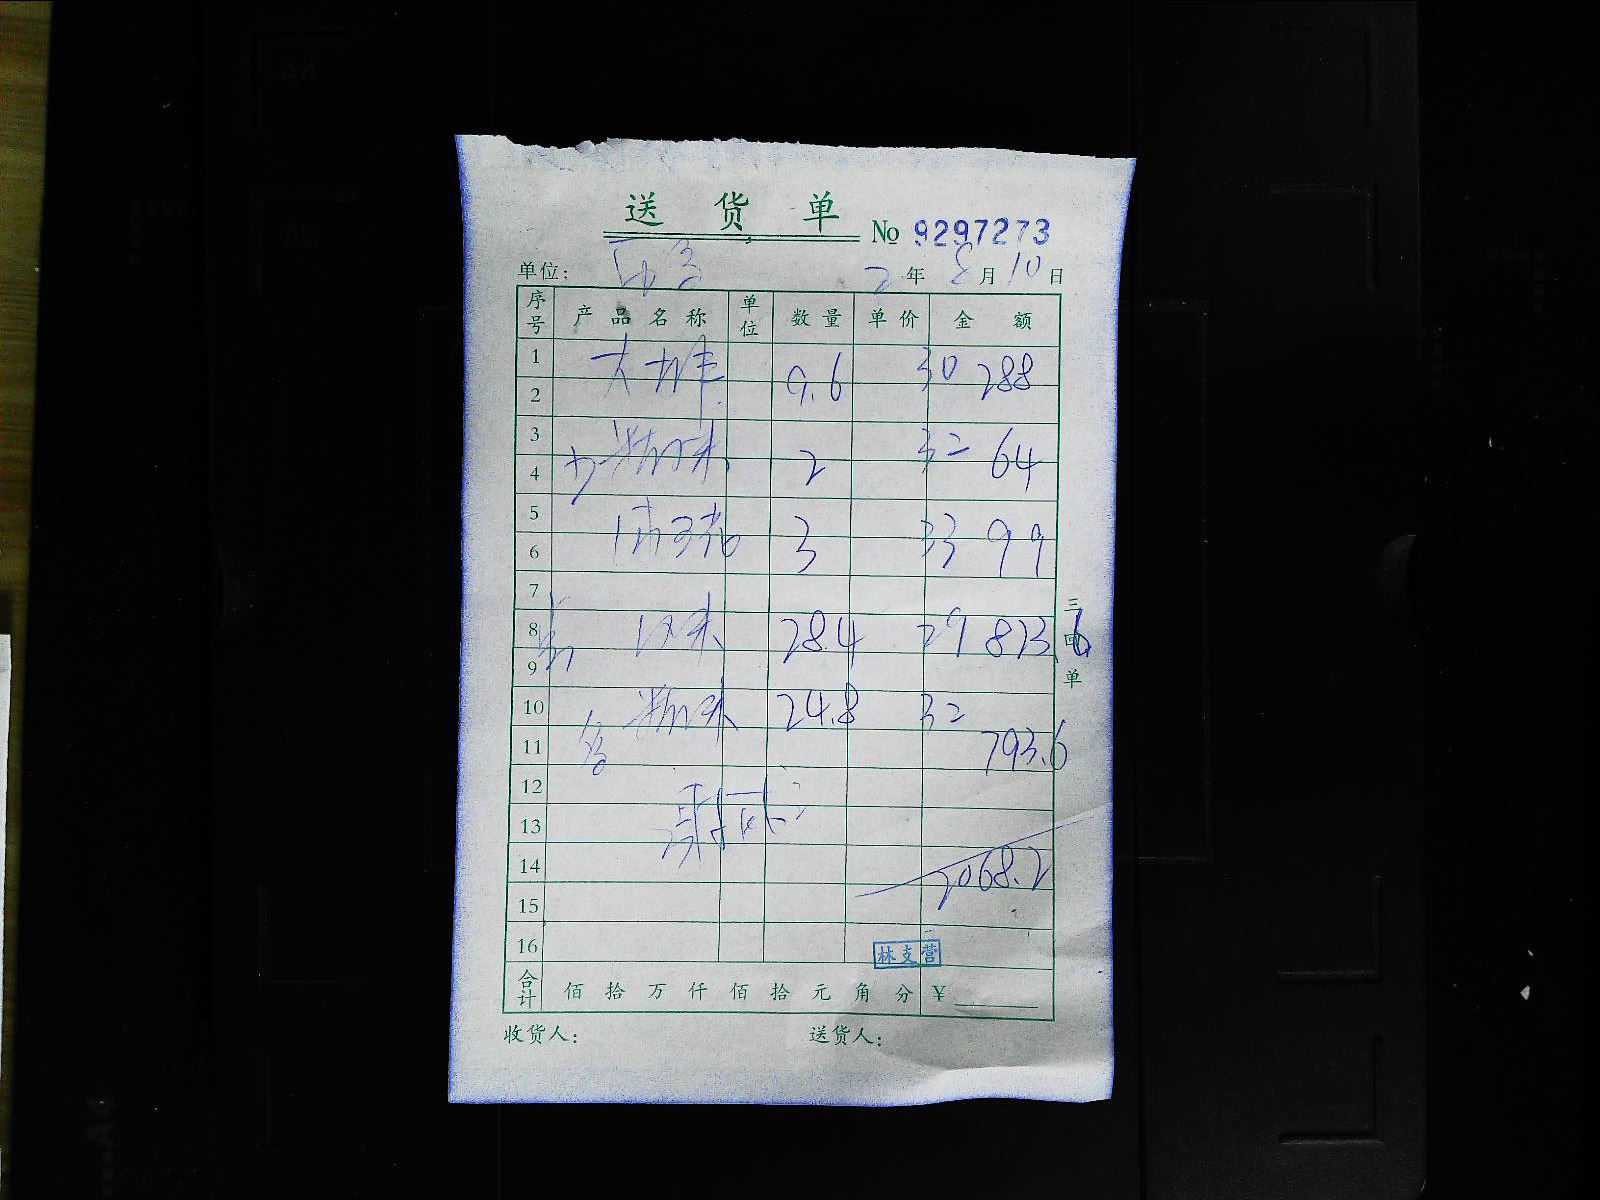 送 货 单
No 9297273
单位： 2 年 8 月 10 日
序号 产品名称 单位 数量 单价 金额
1 大排 9.6 30 288
2
3 2 32 64
4
5 3 33 99
6
7
8 28.4 29 823.6
9
10 24.8 32
11 793.6
12
13
14 2068.2
15
16
林支营
合计 佰 拾 万 仟 佰 拾 元 角 分 ¥
收货人： 送货人：
三回单